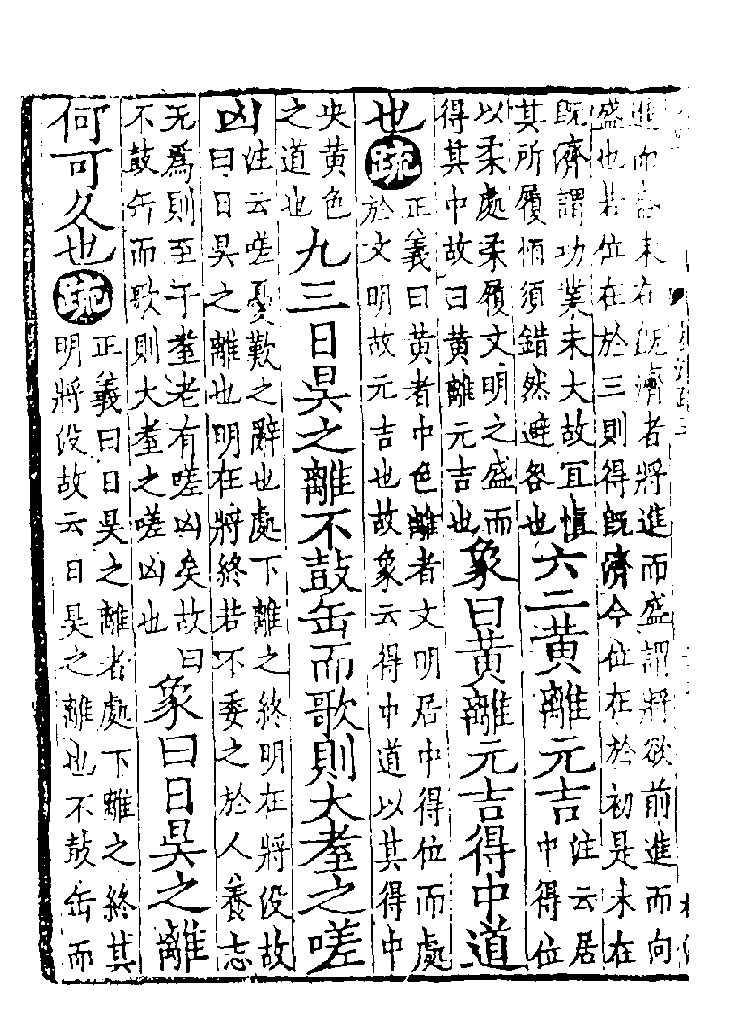 進而盛未在既濟者將進而盛謂將欲前進而向
盛也若位在於三則得既濟今位在於初是未在
既濟謂功業未大故宜慎
其所履恒須錯然避咎也
六二黃離元吉
注云居
中得位
以柔處柔履文明之盛而
得其中故曰黃離元吉也
象曰黃離元吉得中道
也疏
正義曰黃者中色離者文明居中得位而處
於文明故元吉也故象云得中道以其得中
央黃色
之道也
九三日昃之離不鼓缶而歌則大耋之嗟
凶
注云嗟憂歎之辭也處下離之終明在將没故
曰日昃之離也明在將終若不委之於人養志
无爲則至于耋老有嗟凶矣故曰
不鼓缶而歌則大耋之嗟凶也
象曰日昃之離
何可久也疏
正義曰日昃之離者處下離之終其
明將没故云日昃之離也不鼓缶而